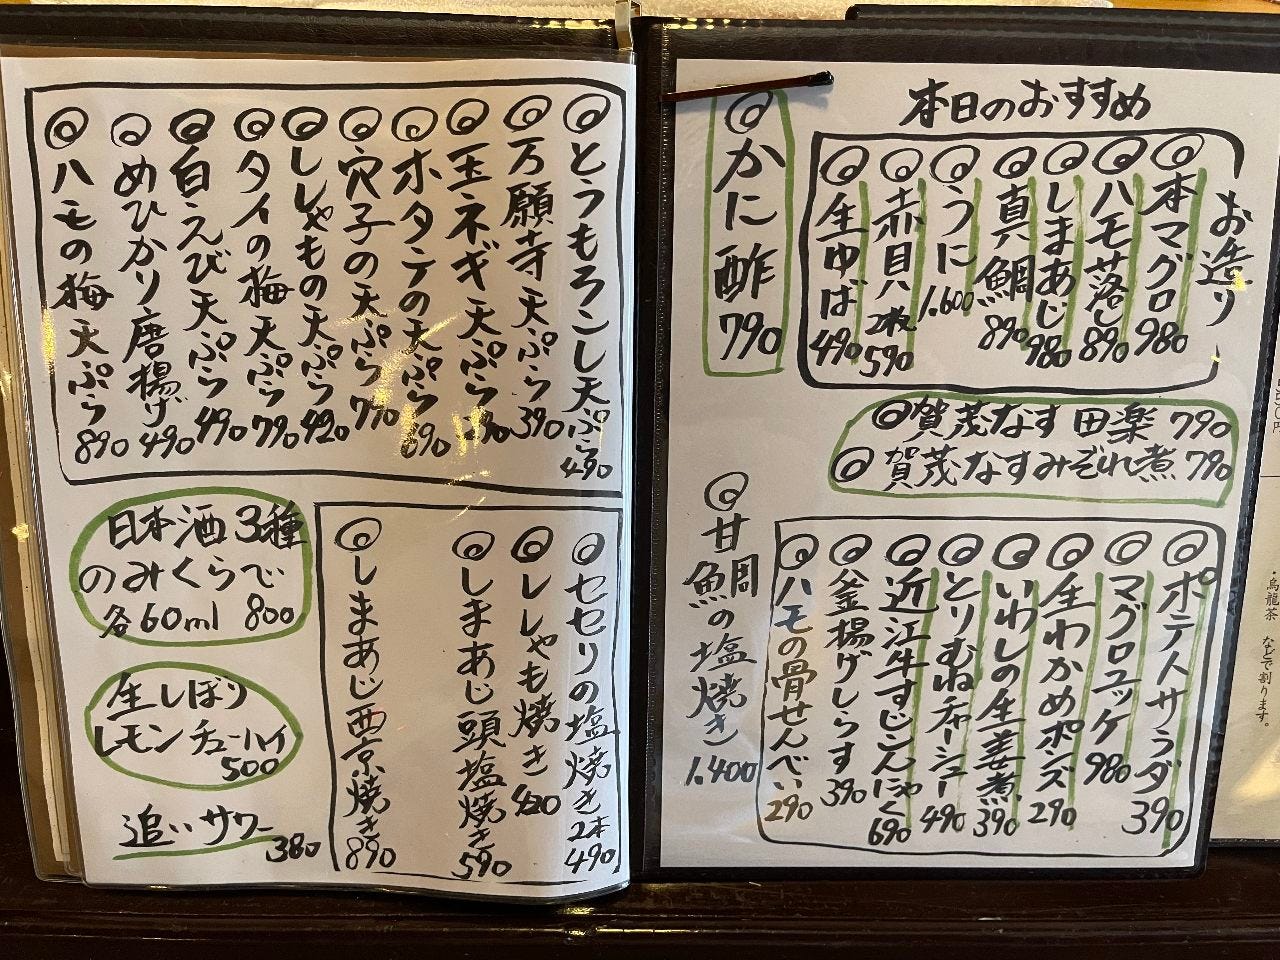 本日のおすすめ
お造り
本マグロ 980
ハモ落し 890
しまあじ 980
真鯛 890
うに 1.600
赤貝 2枚 590
生ゆば 490
かに酢 790
賀茂なす田楽 790
賀茂なすみぞれ煮 790
ポテトサラダ 390
マグロユッケ 980
生わかめポンズ 290
いわしの生姜煮 390
とりむねチャーシュー 490
近江牛すじこんにゃく 690
釜揚げしらす 390
ハモの骨せんべい 290
甘鯛の塩焼き 1.400
・烏龍茶 などで割ります。
とうもろこし天ぷら 490
万願寺天ぷら 390
玉ネギ天ぷら
ホタテの天ぷら 690
穴子の天ぷら 790
ししゃもの天ぷら 420
タイの梅天ぷら 790
白えび天ぷら 490
めひかり唐揚げ 490
ハモの梅天ぷら 890
セセリの塩焼き 2本 490
ししゃも焼き 420
しまあじ頭塩焼き 590
しまあじ西京焼き 890
日本酒3種
のみくらべ
各60ml 800
生しぼり
レモンチューハイ
500
追いサワー
380